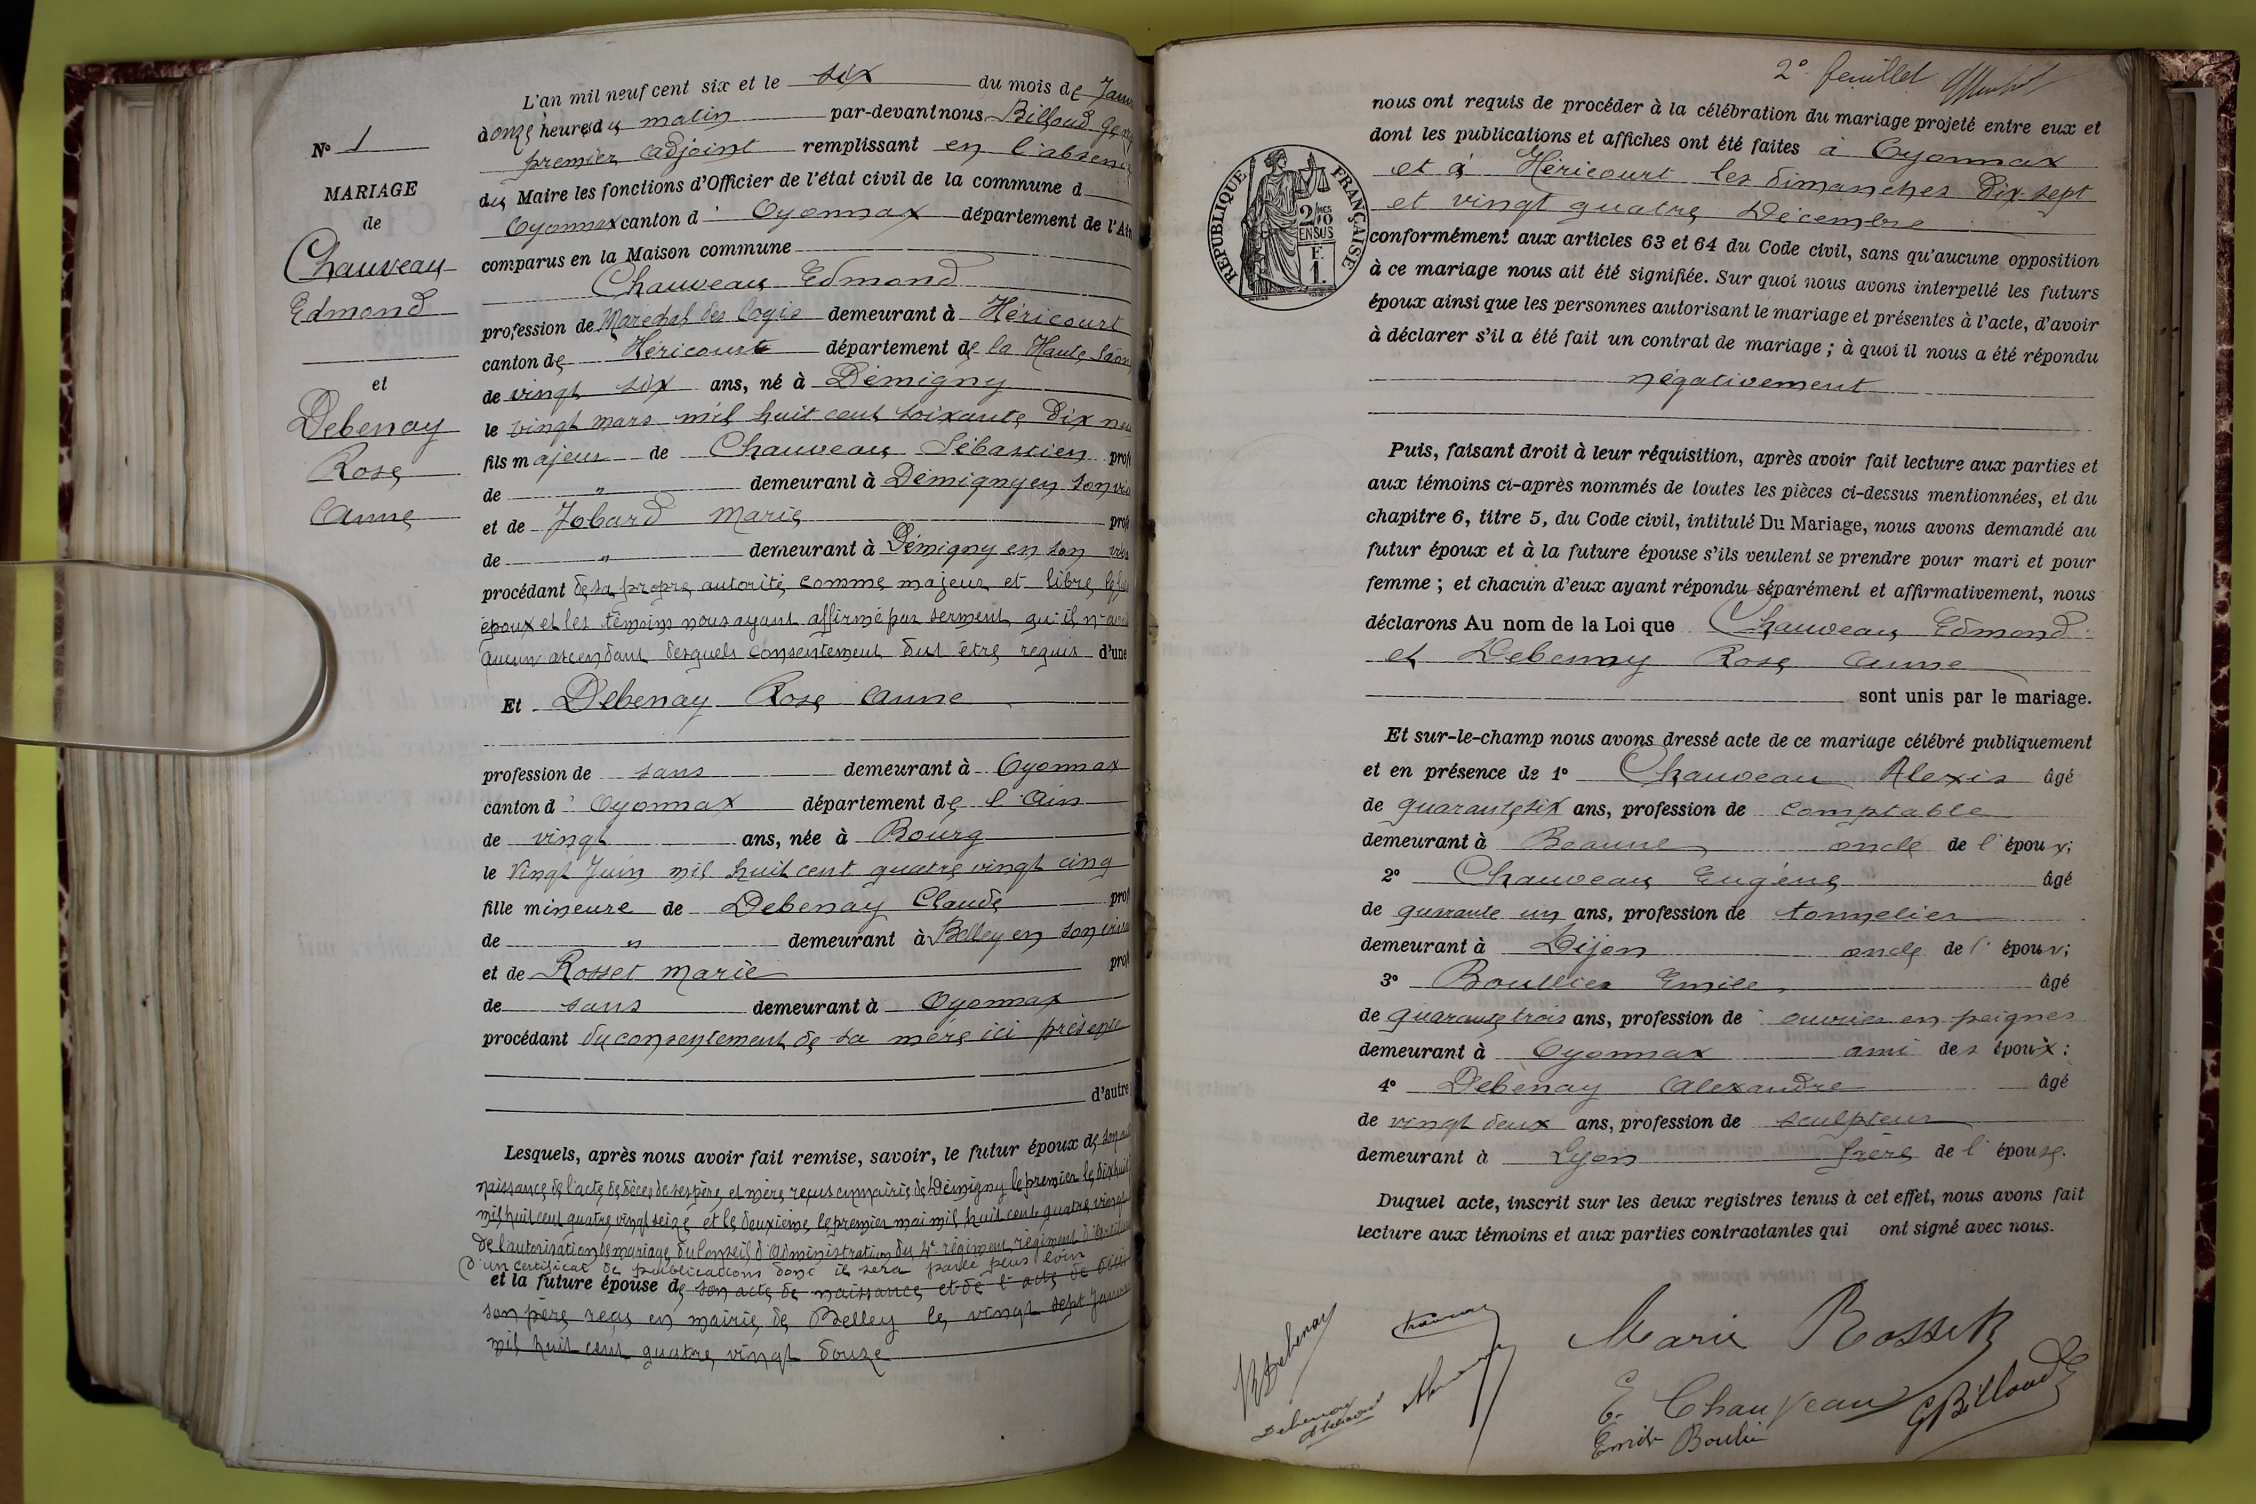 N° 1
MARIAGE
de
Chauveau
Edmond
et
Debenay
Rose
Anne
L'an mil neuf cent six et le six du mois de Janv
à onze heures du matin par-devant nous Billoud
premier adjoint remplissant en l'absence
du Maire les fonctions d'Officier de l'état civil de la commune d
Oyonnax canton d' Oyonnax département de l'Ain
comparus en la Maison commune
Chauveau Edmond
profession de Maréchal des logis demeurant à Héricourt
canton de Héricourt département de la Haute Saône
de vingt six ans, né à Démigny
le vingt mars mil huit cent soixante dix neu
fils majeur de Chauveau Sébastien prof
de " demeurant à Démigny en son viv
et de Jobard Marie prof
de " demeurant à Démigny en son viv
procédant de sa propre autorité, comme majeur et libre, le fut
époux et les témoins nous ayant affirmé par serment qu'il n'avait
aucun ascendant desquels consentement dut être requis d'une
Et Debenay Rose Anne
profession de sans demeurant à Oyonnax
canton d' Oyonnax département de l'Ain
de vingt ans, née à Bourg
le vingt Juin mil huit cent quatre vingt cinq
fille mineure de Debenay Claude prof
de " demeurant à Belley en son viva
et de Rosset Marie prof
de sans demeurant à Oyonnax
procédant du consentement de sa mère ici présente
d'autre
Lesquels, après nous avoir fait remise, savoir, le futur époux de son
naissance de l'acte de décès de ses père et mère reçus en mairie de Démigny le premier le dix huit
mil huit cent quatre vingt seize et le deuxième le premier mai mil huit cent quatre vingt
de l'autorisation de mariage du Conseil d'administration du 4e régiment régiment d'
d'un certificat de publications dont il sera parlé plus loin
et la future épouse de son acte de naissance et de l'acte de décès
son père reçu en mairie de Belley le vingt sept Janvier
mil huit cent quatre vingt douze
2e feuillet
RÉPUBLIQUE FRANÇAISE
nous ont requis de procéder à la célébration du mariage projeté entre eux et
dont les publications et affiches ont été faites à Oyonnax
et à Héricourt les dimanches dix-sept
et vingt quatre Décembre
conformément aux articles 63 et 64 du Code civil, sans qu'aucune opposition
à ce mariage nous ait été signifiée. Sur quoi nous avons interpellé les futurs
époux ainsi que les personnes autorisant le mariage et présentes à l'acte, d'avoir
à déclarer s'il a été fait un contrat de mariage ; à quoi il nous a été répondu
négativement
Puis, faisant droit à leur réquisition, après avoir fait lecture aux parties et
aux témoins ci-après nommés de toutes les pièces ci-dessus mentionnées, et du
chapitre 6, titre 5, du Code civil, intitulé Du Mariage, nous avons demandé au
futur époux et à la future épouse s'ils veulent se prendre pour mari et pour
femme ; et chacun d'eux ayant répondu séparément et affirmativement, nous
déclarons Au nom de la Loi que Chauveau Edmond
et Debenay Rose Anne
sont unis par le mariage.
Et sur-le-champ nous avons dressé acte de ce mariage célébré publiquement
et en présence de 1° Chauveau Alexis âgé
de quarante six ans, profession de comptable
demeurant à Beaune oncle de l'époux;
2° Chauveau Eugène âgé
de quarante un ans, profession de tonnelier
demeurant à Dijon oncle de l'époux;
3° Boullier Emile âgé
de quarante trois ans, profession de ouvrier en peignes
demeurant à Oyonnax ami des époux;
4° Debenay Alexandre âgé
de vingt deux ans, profession de sculpteur
demeurant à Lyon frère de l'épouse.
Duquel acte, inscrit sur les deux registres tenus à cet effet, nous avons fait
lecture aux témoins et aux parties contractantes qui ont signé avec nous.
R Debenay
Marie Rosset
Debenay
E. Chauveau
G Billoud
Emile